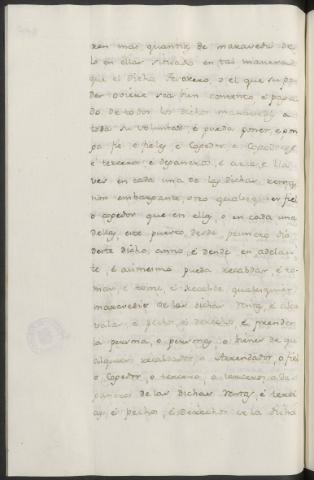 ren mas quantia de maravedis de
lo en ellas situado en tal manera
que el dicho Tesorero, o el que su po
der oviere sea bien contento e paga
do de todos los dichos maravedis a
toda su voluntad e pueda poner, e pon
ga fiel e fieles e Cojedor e Cojedores
e tercero e deganeros, e arca, e lla
ves en cada una de las dichas rentas
non embargante, otro qualquier fiel
o cojedor que en ellas, o en cada una
dellas, este puesto, desde primero dia
deste dicho anno, e dende en adelan
te, e asimesmo pueda recabdar, e to
mar, e tome, e recabde, qualesquier
maravedis de las dichas rentas, e alca
valas, e pechos, e derechos e prender
la persona, o personas, o bienes de qua
lesquier recabdador, o Arrendador, o fiel
o Cojedor, o tercero, o terceros, o de
ganeros de las dichas rentas, e terci
as, e pechos, e derechos de la dicha